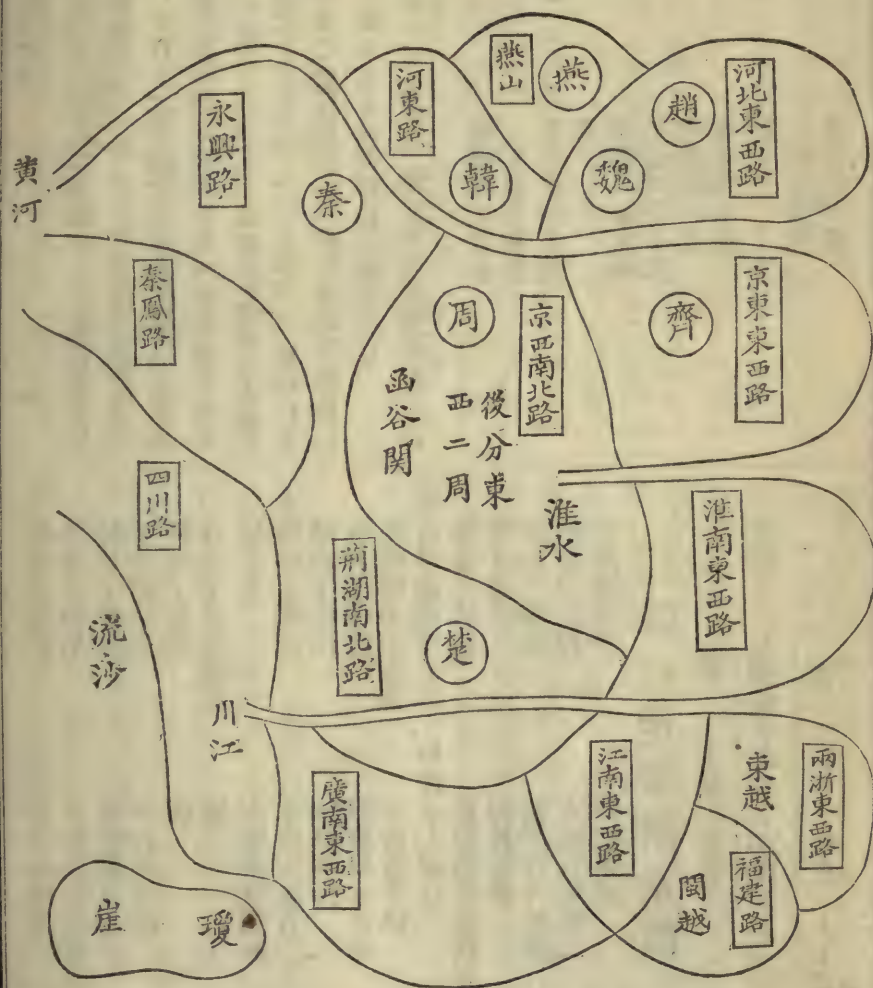 河北東西路
趙
魏
燕
燕山
河東路
韓
永興路
秦
黄河
秦鳳路
京東東西路
齊
京西南北路
周
後分東
西二周
函谷関
淮水
淮南東西路
四川路
荆湖南北路
楚
流沙
川江
兩浙東西路
東越
江南東西路
福建路
閩越
廣南東西路
瓊
崖